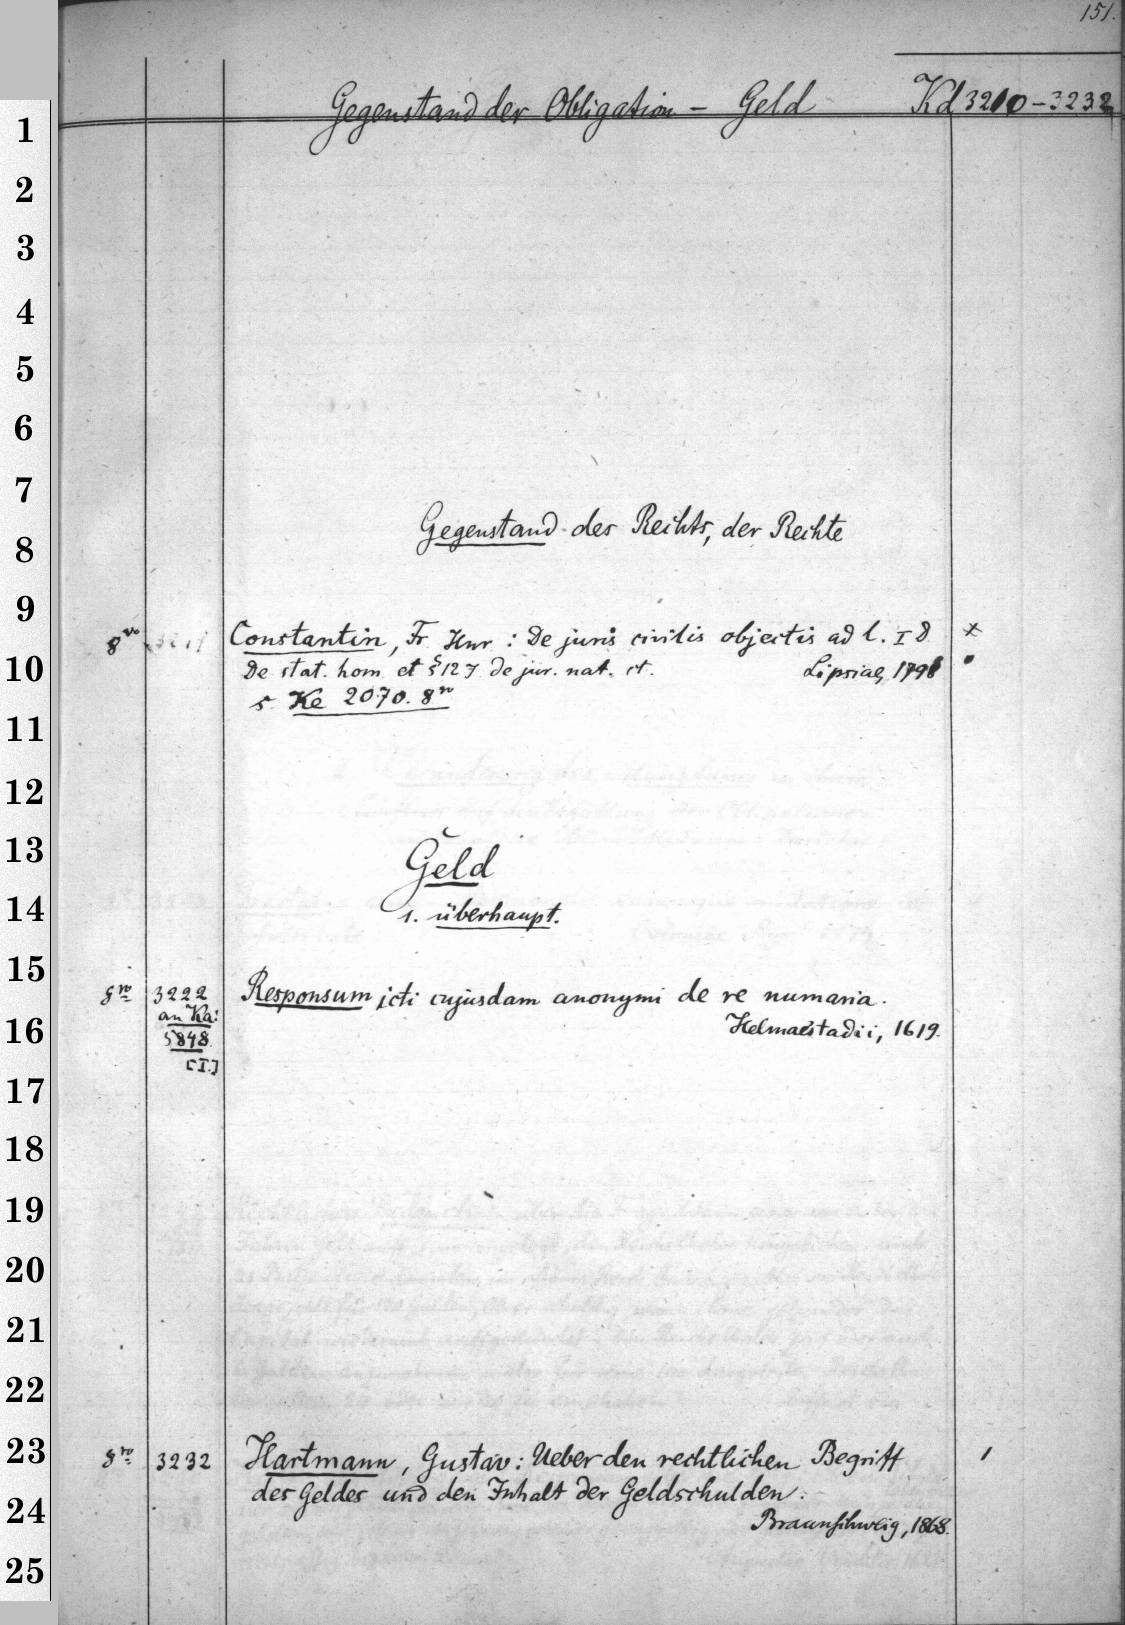 151.
Gegenstand der Obligation - Geld Kd 3210-3232
Gegenstand des Rechts, der Rechte
8vo 3211 Constantin, Fr. Hnr: De juris civilis objectis ad l. I D ×
De stat. hom et § 12 J de jur. nat. et. Lipsiae, 1798
s. Ke 2070. 8vo
Geld
1. überhaupt.
8vo 3222 Responsum icti cujusdam anonymi de re numaria.
an Ka: Helmaestadii, 1619.
5848.
[I.]
8vo 3232 Hartmann, Gustav: Ueber den rechtlichen Begriff
des Geldes und den Inhalt der Geldschulden.
Braunschweig, 1868.
1
2
3
4
5
6
7
8
9
10
11
12
13
14
15
16
17
18
19
20
21
22
23
24
25